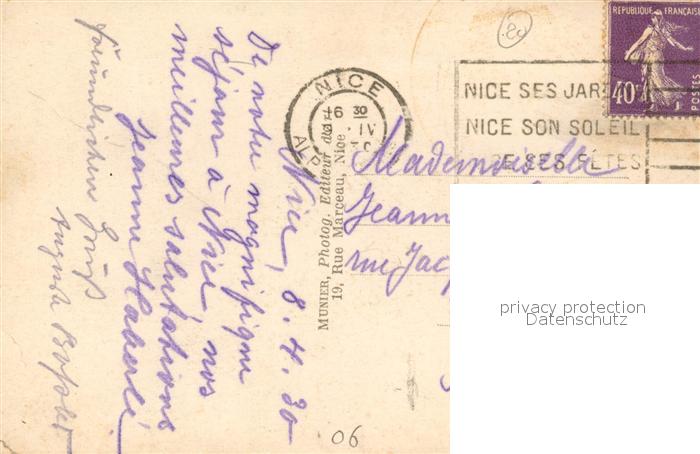 Nice, 8.4.30
De notre magnifique
séjour à Nice, nos
meilleures salutations
Jeanne Haberli
freundlichen Gruß
Augusta
MUNIER, Photog. Editeur d'art
19, Rue Marceau, Nice
NICE
16 30
IV
ALP
NICE SES JAR
NICE SON SOLEIL
SES FÊTES
REPUBLIQUE FRANÇAISE
40c
POSTES
Mademoiselle
Jeann
rue Jacq
06
privacy protection
Datenschutz